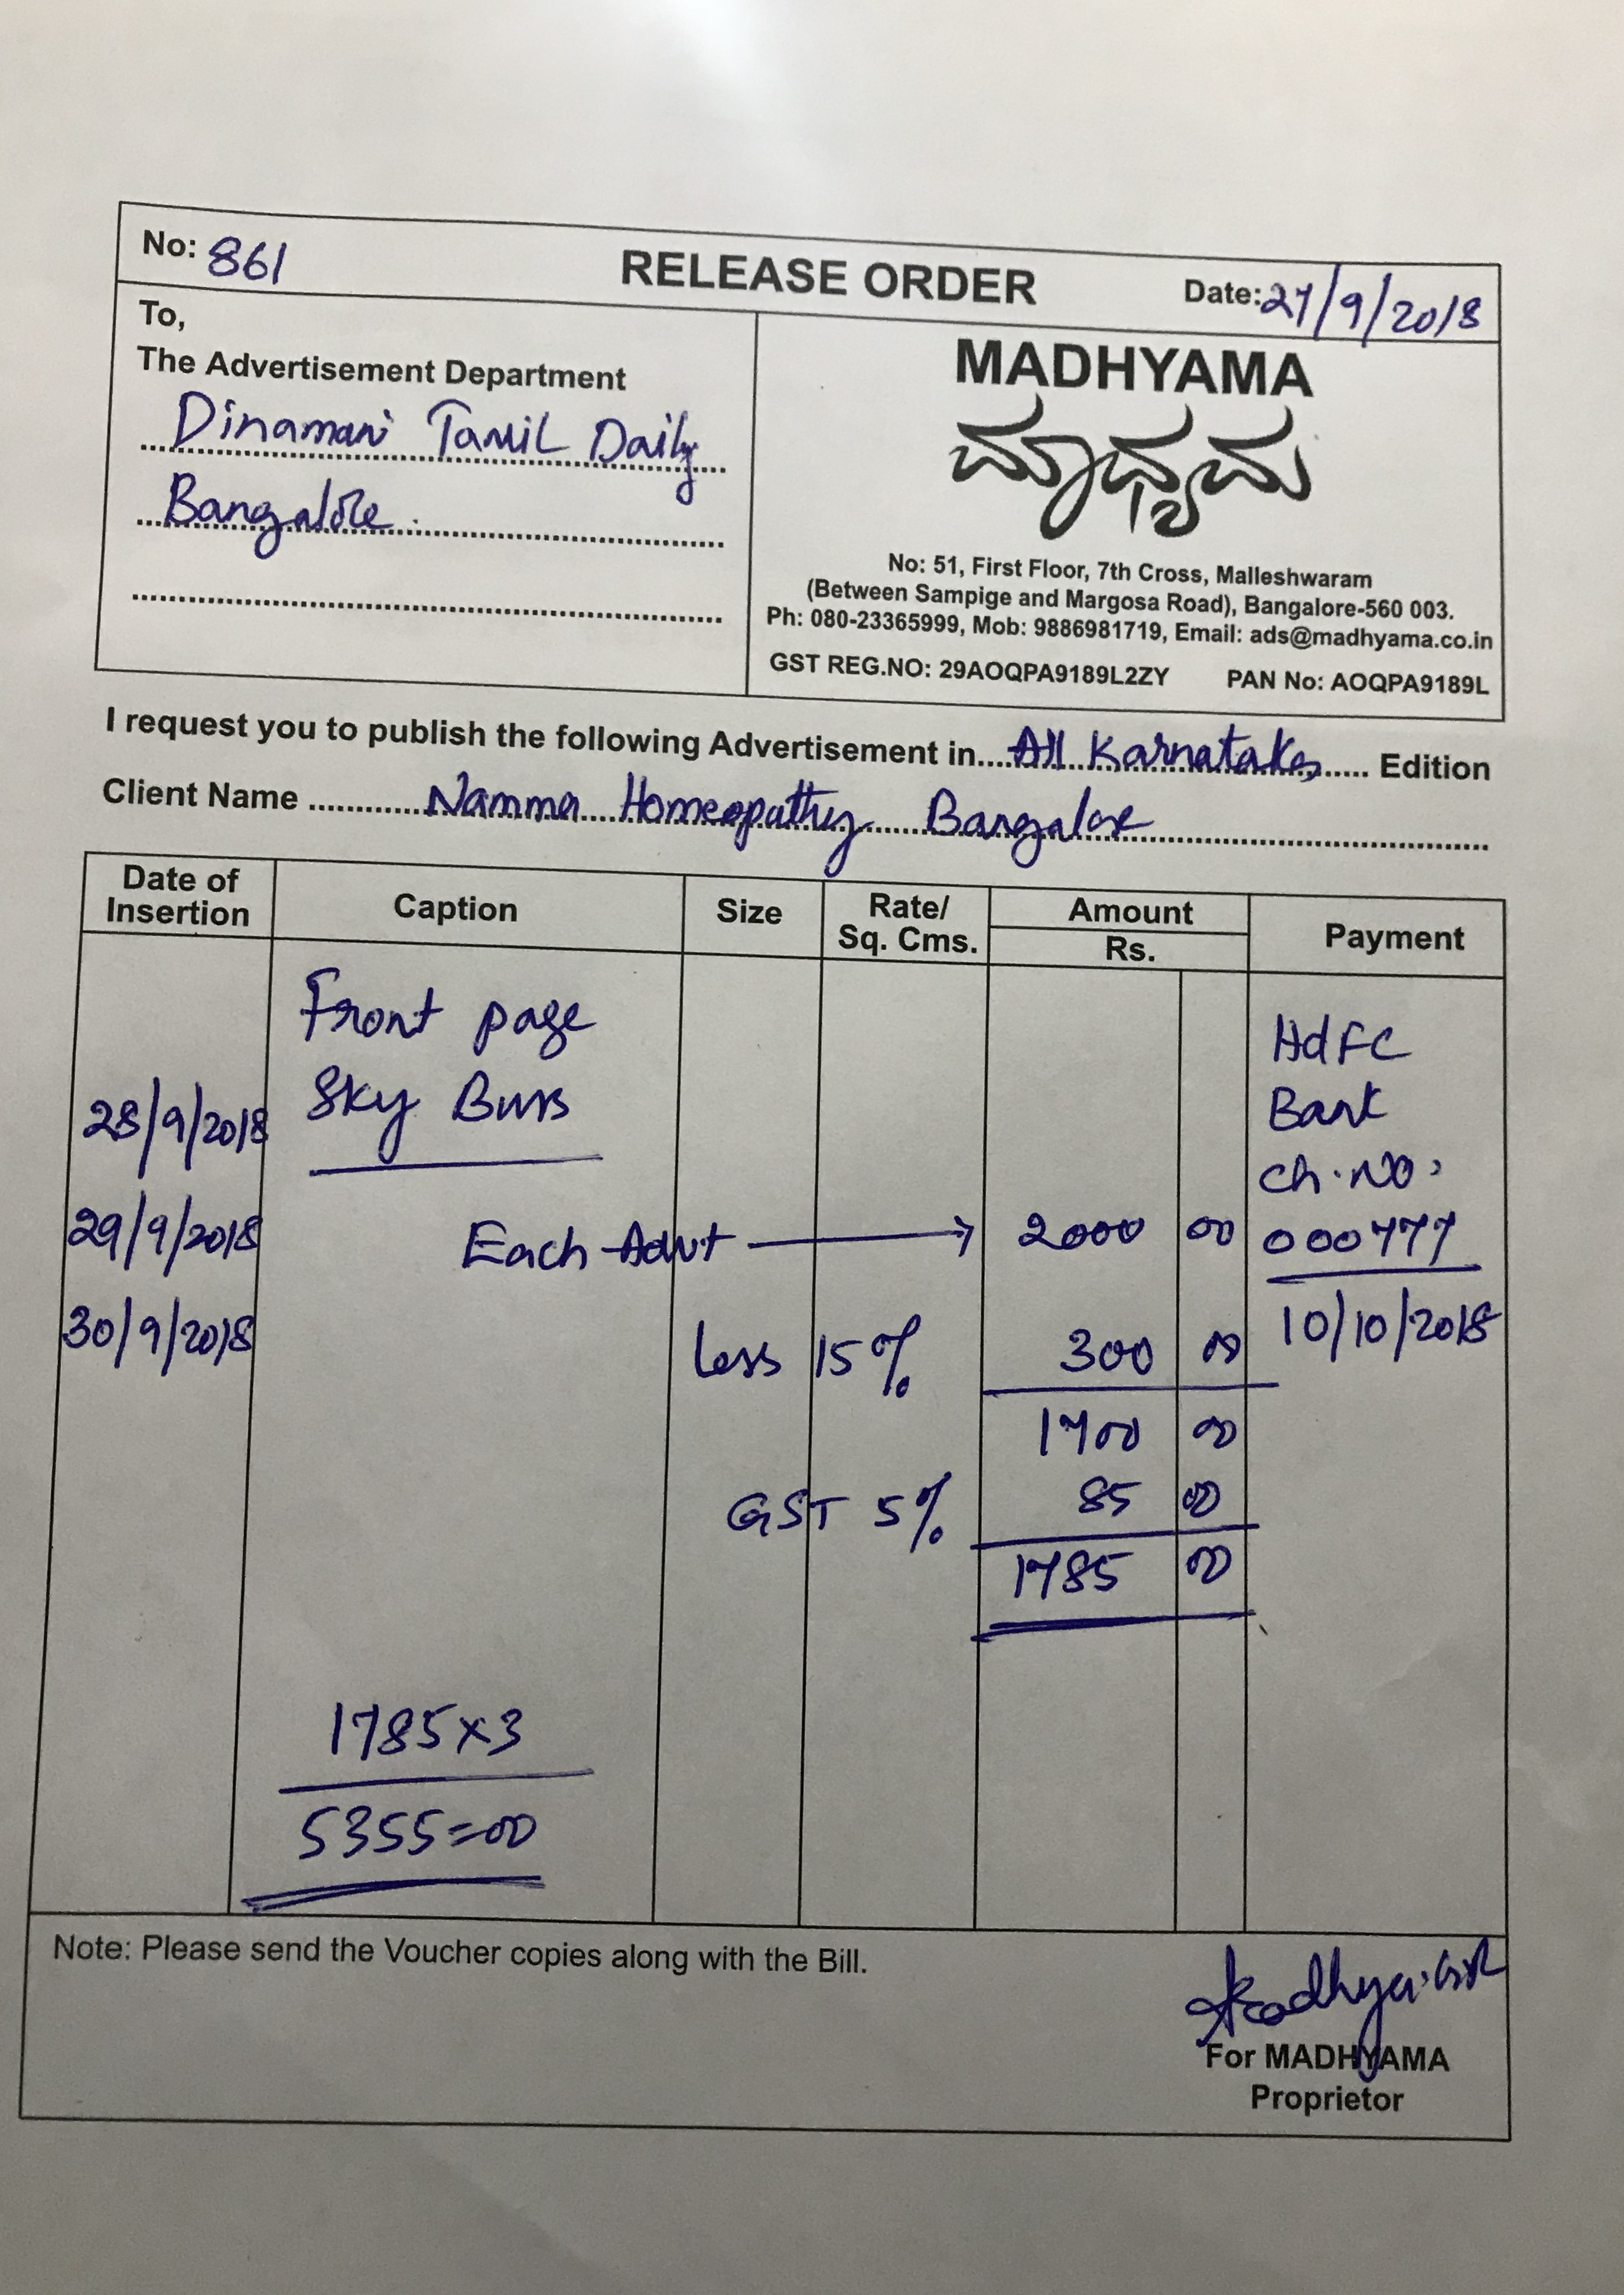 No: 861
RELEASE ORDER
Date: 27/9/2018
To,
The Advertisement Department
Dinamani Tamil Daily
Bangalore.
MADHYAMA
ಮಾಧ್ಯಮ
No: 51, First Floor, 7th Cross, Malleshwaram
(Between Sampige and Margosa Road), Bangalore-560 003.
Ph: 080-23365999, Mob: 9886981719, Email: ads@madhyama.co.in
GST REG.NO: 29AOQPA9189L2ZY PAN No: AOQPA9189L
I request you to publish the following Advertisement in....All Karnataka..... Edition
Client Name ............Namma Homeopathy Bangalore............
Date of Insertion
Caption
Size
Rate/ Sq. Cms.
Amount
Rs.
Payment
Front page
Sky
28/9/2018
29/9/2018
30/9/2018
Each Advt → 2000 00
less 15% 300 00
1700 00
GST 5% 85 00
1785 00
HdFC
Bank
ch. No:
000777
10/10/2018
1785x3
5355=00
Note: Please send the Voucher copies along with the Bill.
For MADHYAMA
Proprietor